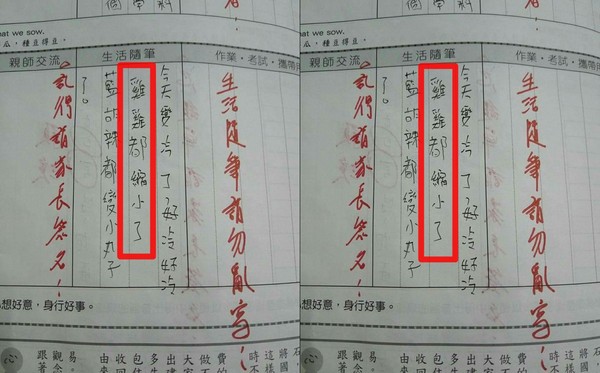 hat we sow.
瓜，種豆得豆。
親師交流 生活隨筆 作業・考試・攜帶
生活隨筆請勿亂寫！
今天變冷了好冷好冷
雞雞都縮小了
藍 辣都變小丸子
了。
請家長簽名！
想好意，身行好事。
hat we sow.
瓜，種豆得豆。
親師交流 生活隨筆 作業・考試・攜帶
生活隨筆請勿亂寫！
今天變冷了好冷好冷
雞雞都縮小了
藍 辣都變小丸子
了。
請家長簽名！
想好意，身行好事。